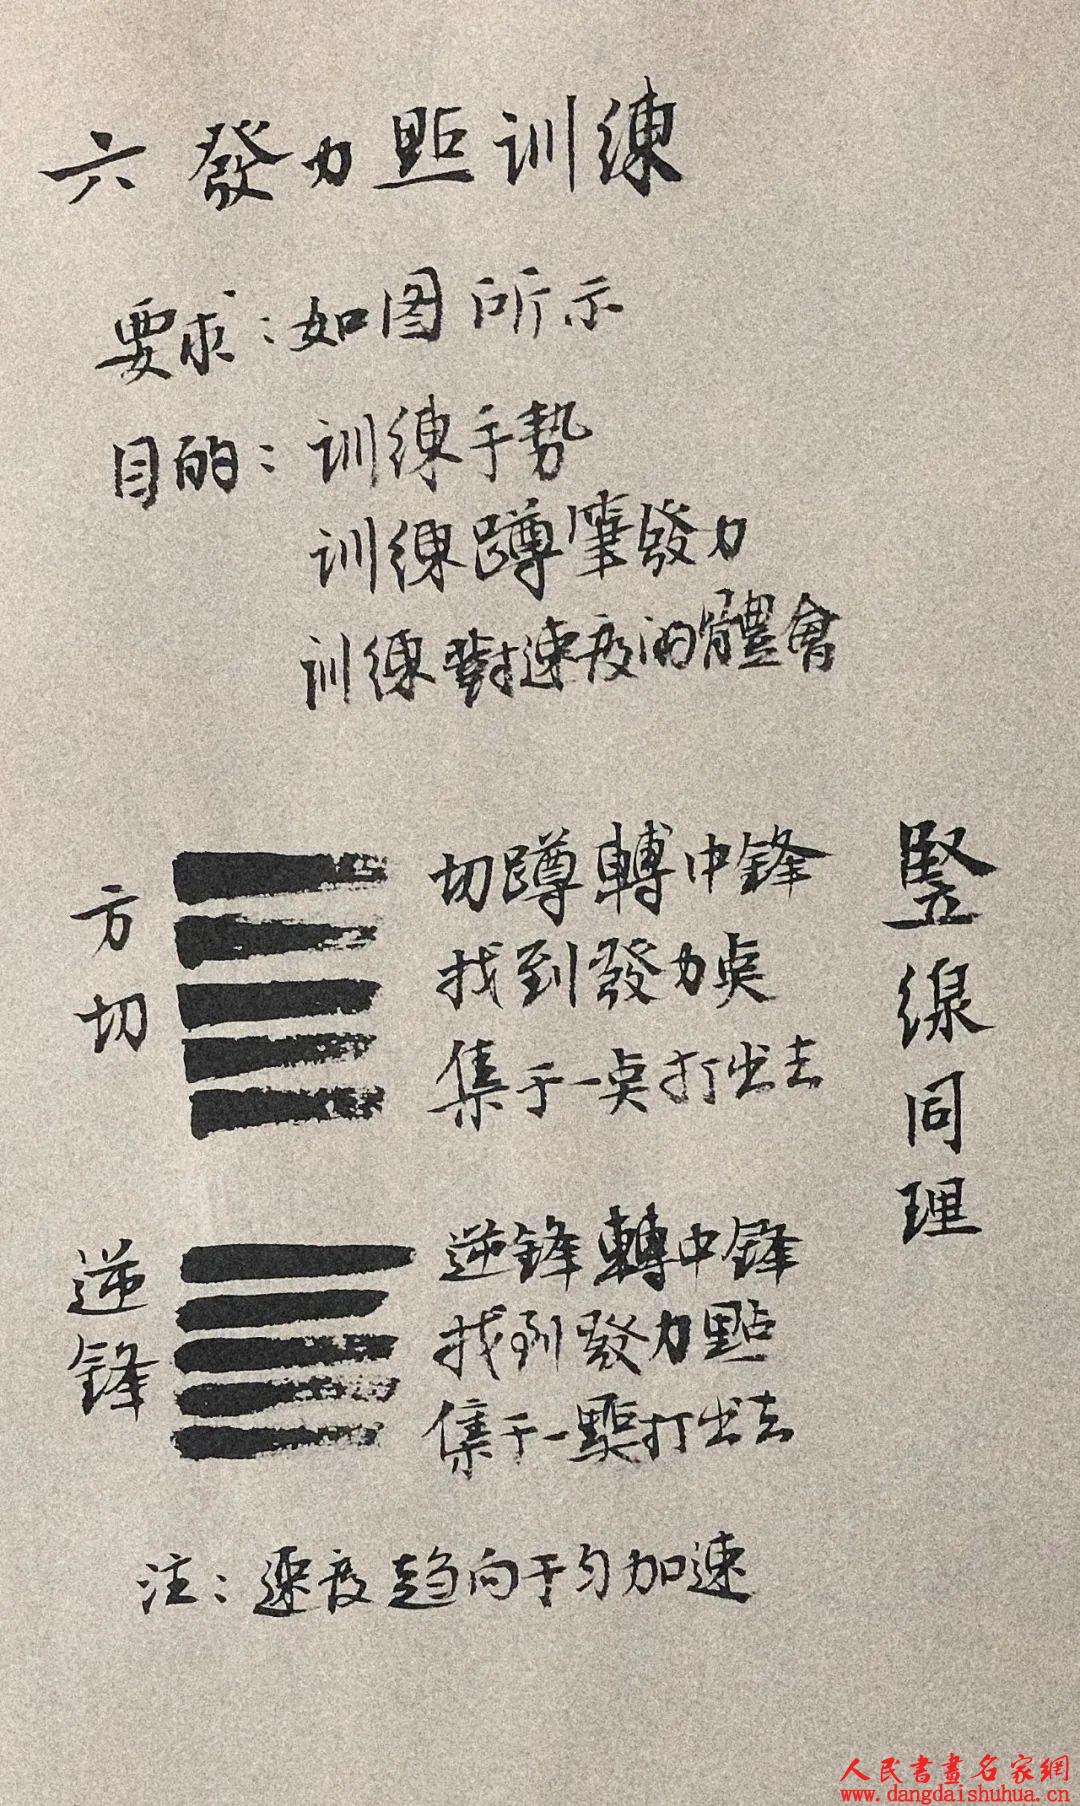 六 發力點训練
要求：如图所示
目的：训練手势
训練蹲筆發力
训練對速度的體會
方切
切蹲轉中鋒
找到發力点
集于一点打出去
竖線同理
逆鋒
逆鋒轉中鋒
找到發力點
集于一點打出去
注：速度趋向于匀加速
人民書畫名家網
www.dangdaishuhua.cn